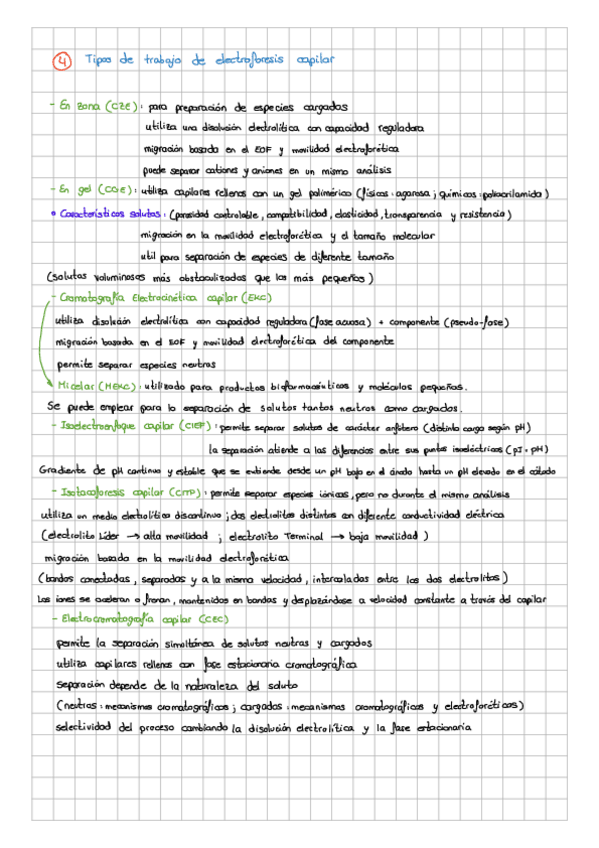 4 Tipos de trabajo de electroforesis capilar
- En zona (CZE): para preparación de especies cargadas
utiliza una disolución electrolítica con capacidad reguladora
migración basada en el EOF y movilidad electroforética
puede separar cationes y aniones en un mismo análisis
- En gel (CGE): utiliza capilares rellenos con un gel polimérico (físicos: agarosa; químicos: poliacrilamida)
• Características solutos: (porosidad controlable, compatibilidad, elasticidad, transparencia y resistencia)
migración en la movilidad electroforética y el tamaño molecular
util para separación de especies de diferente tamaño
(solutos voluminosos más obstaculizados que los más pequeños)
- Cromatografía Electrocinética capilar (EKC)
utiliza disolución electrolítica con capacidad reguladora (fase acuosa) + componente (pseudo-fase)
migración basada en el EOF y movilidad electroforética del componente
permite separar especies neutras
Micelar (MEKC): utilizado para productos biofarmacéuticos y moléculas pequeñas.
Se puede emplear para la separación de solutos tantos neutros como cargados.
- Isoelectroenfoque capilar (CIEF): permite separar solutos de carácter anfótero (distinta carga según pH)
la separación atiende a las diferencias entre sus puntos isoeléctricos (pI = pH)
Gradiente de pH continuo y estable que se extiende desde un pH bajo en el ánodo hasta un pH elevado en el cátodo
- Isotacoforesis capilar (CITP): permite separar especies iónicas, pero no durante el mismo análisis
utiliza un medio electrolítico discontinuo; dos electrolitos distintos con diferente conductividad eléctrica
(electrolito Líder → alta movilidad ; electrolito Terminal → baja movilidad)
migración basada en la movilidad electroforética
(bandas conectadas, separadas y a la misma velocidad, intercaladas entre los dos electrolitos)
Los iones se aceleran o frenan, mantenidos en bandas y desplazándose a velocidad constante a través del capilar
- Electrocromatografía capilar (CEC)
permite la separación simultánea de solutos neutros y cargados
utiliza capilares rellenos con fase estacionaria cromatográfica
separación depende de la naturaleza del soluto
(neutros: mecanismos cromatográficos; cargados: mecanismos cromatográficos y electroforéticos)
selectividad del proceso cambiando la disolución electrolítica y la fase estacionaria